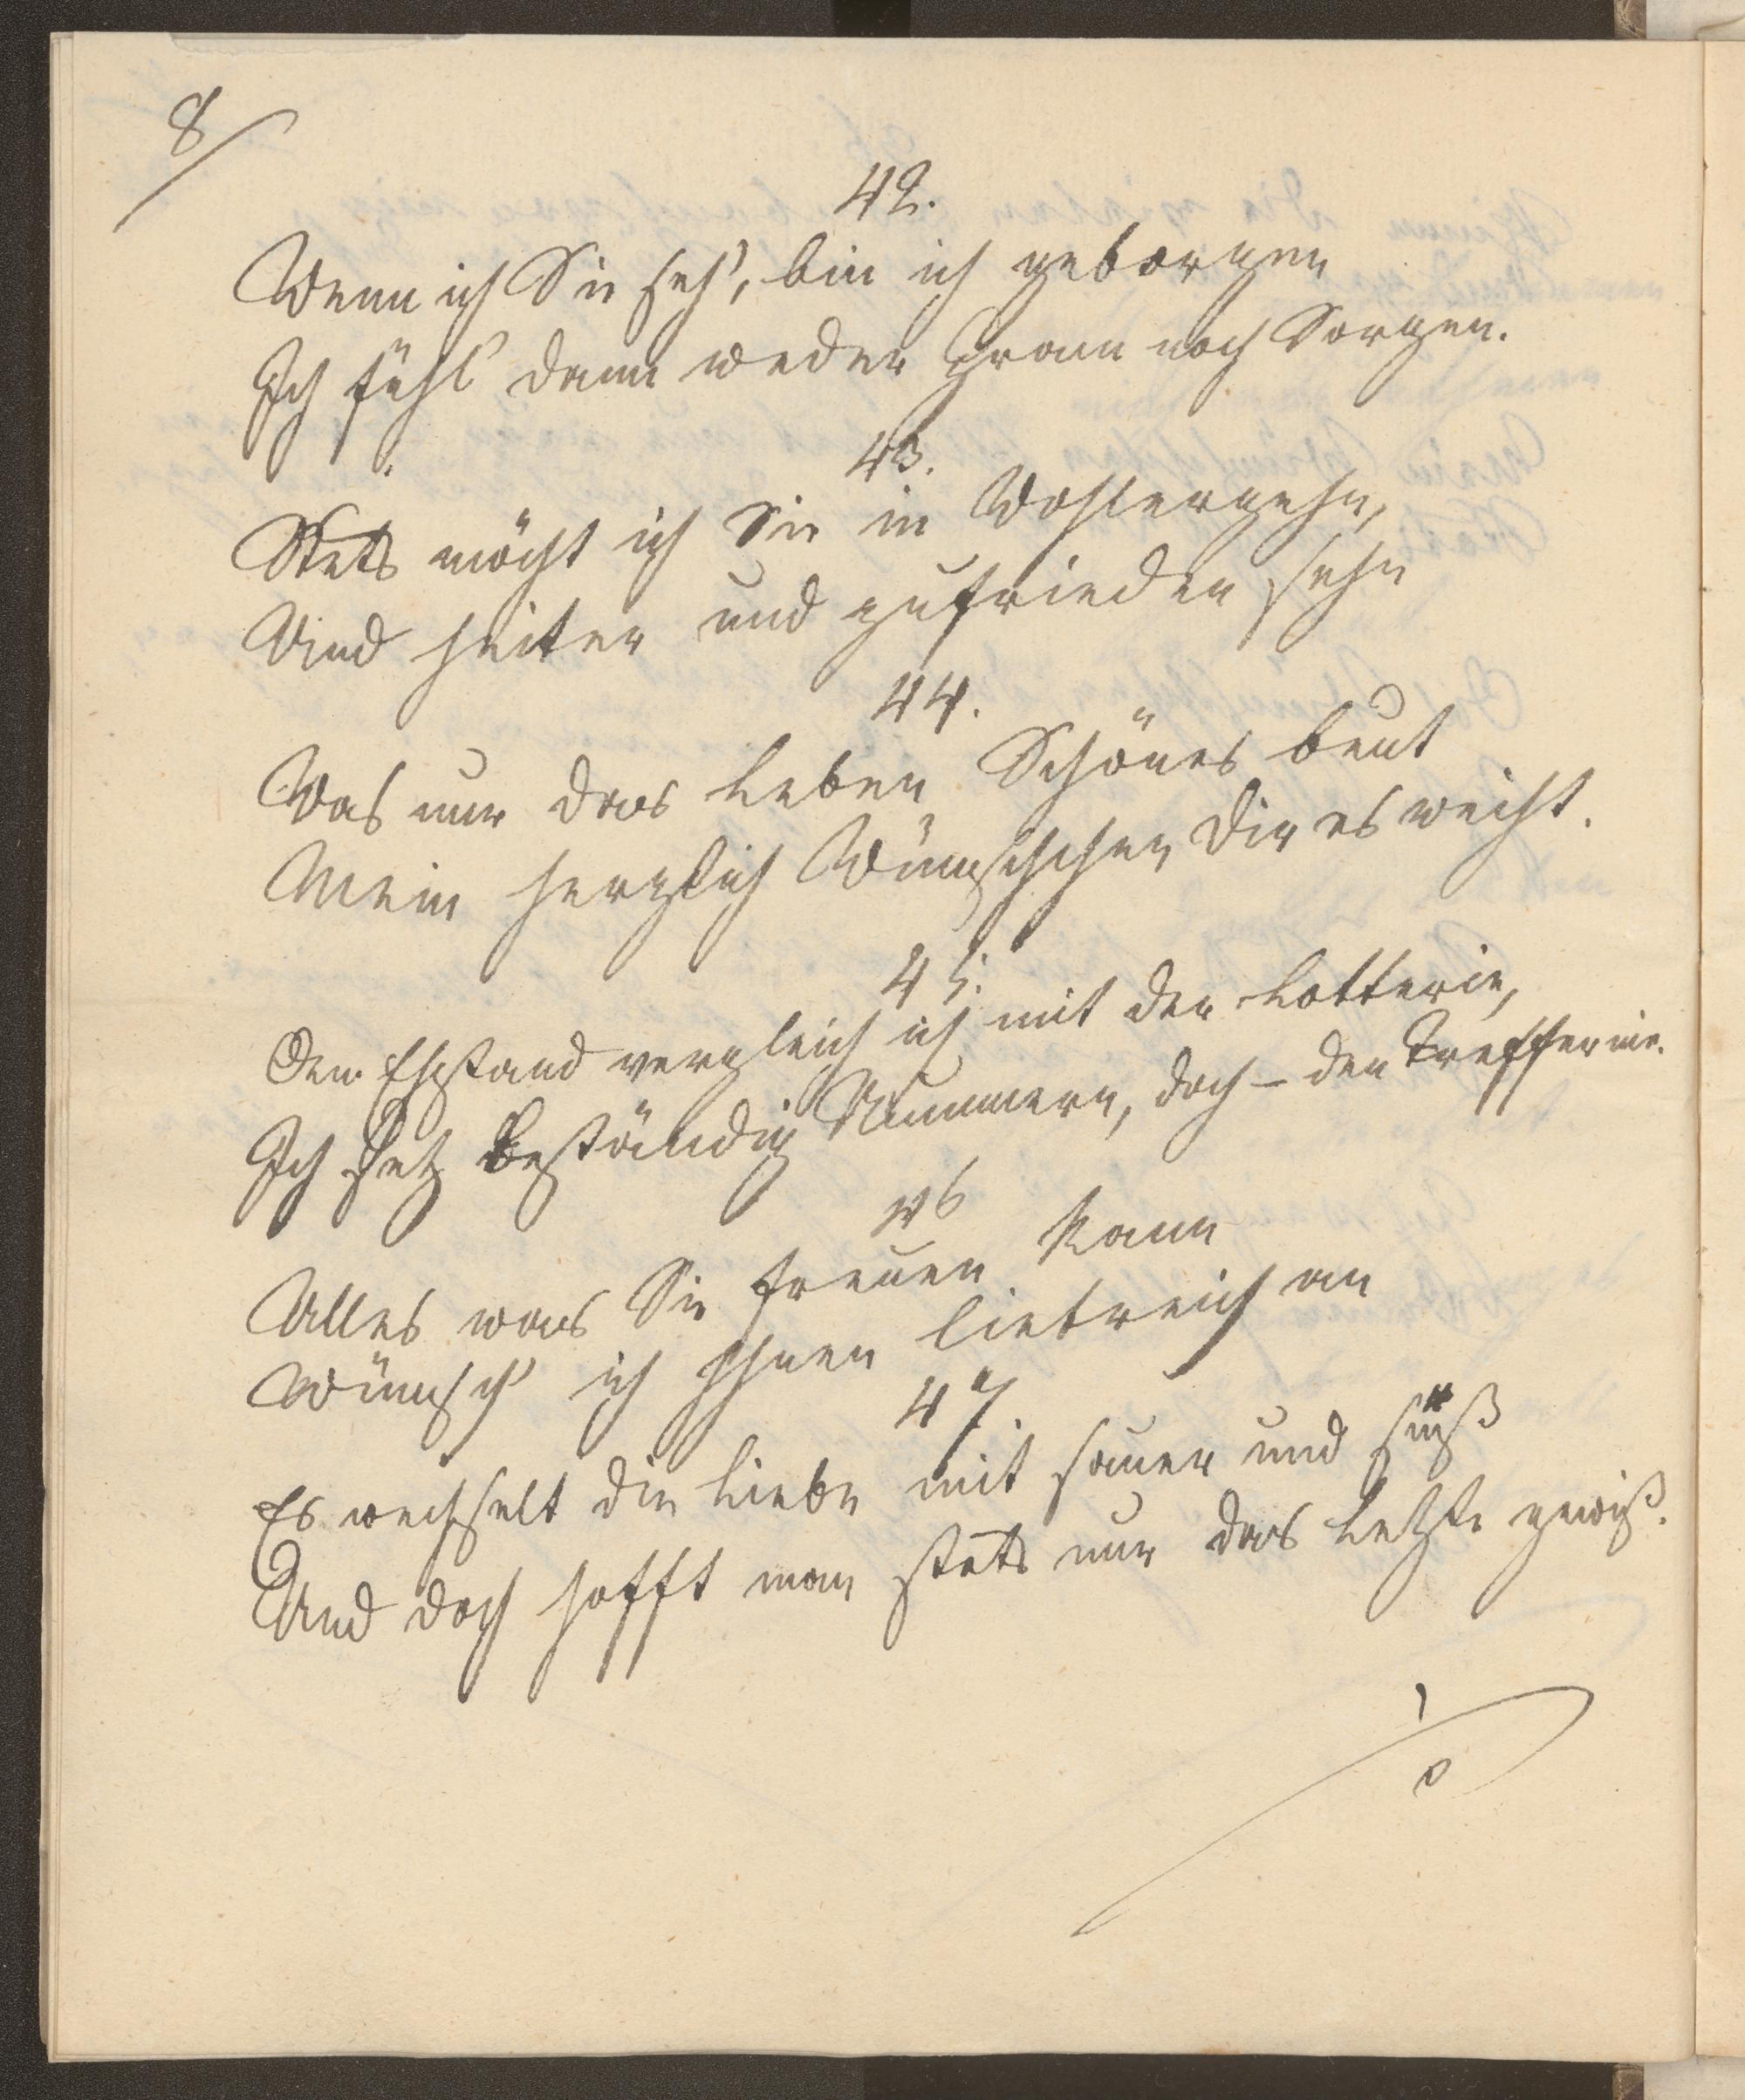 8/
42.
Wenn ich Sie seh', bin ich geborgen
Ich fühl' dann weder Gram noch Sorgen.
43.
Stets möcht ich Sie in Wohlergehn,
Und heiter und zufrieden sehn
44.
Was nur das Leben Schönes beut
Mein herzlich Wünschchen Dir es weiht.
45.
Den Ehstand vergleich ich mit der Lotterie,
Ich setz beständig Nummern, doch – den Treffer nie.
46
Alles was Sie freuen kann
Wünsch' ich Ihnen liebreich an
47.
Es wechselt die Liebe mit sauer und süß
Und doch hofft man stets nur das Letzte gewiß.